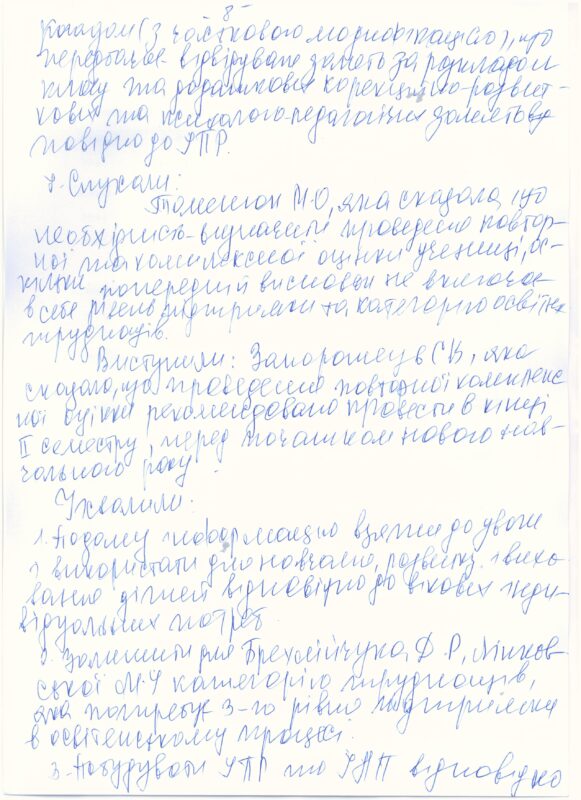 8
кладом (з частковою модифікацією), що
передбачає відвідування занять за розкладом
класу та додаткових корекційно-розвит-
кових та психолого-педагогічних занять від
повідно до ІПР.
Слухали:
М.О, яка сказала, що
необхідність визначені проведення повтор-
ної та комплексної оцінки учениці, ос-
кільки попередній висновок не включає
в себе рівень підтримки та категорію освітніх
труднощів.
Виступили: Запорожець С.В, яка
сказала, що проведення повторної комплекс
ної оцінки рекомендовано провести в кінці
II семестру, перед початком нового нав-
чального року.
Ухвалили:
1. Подану інформацію взяти до уваги
і використати для навчання, розвитку і вихо-
вання дітей відповідно до вікових інди-
відуальних потреб.
2. Залишити для Д.Р,
М.І категорію труднощів,
яка потребує 3-го рівня підтримки
в освітньому процесі.
3. Побудувати ІПР та ІНП відповідно